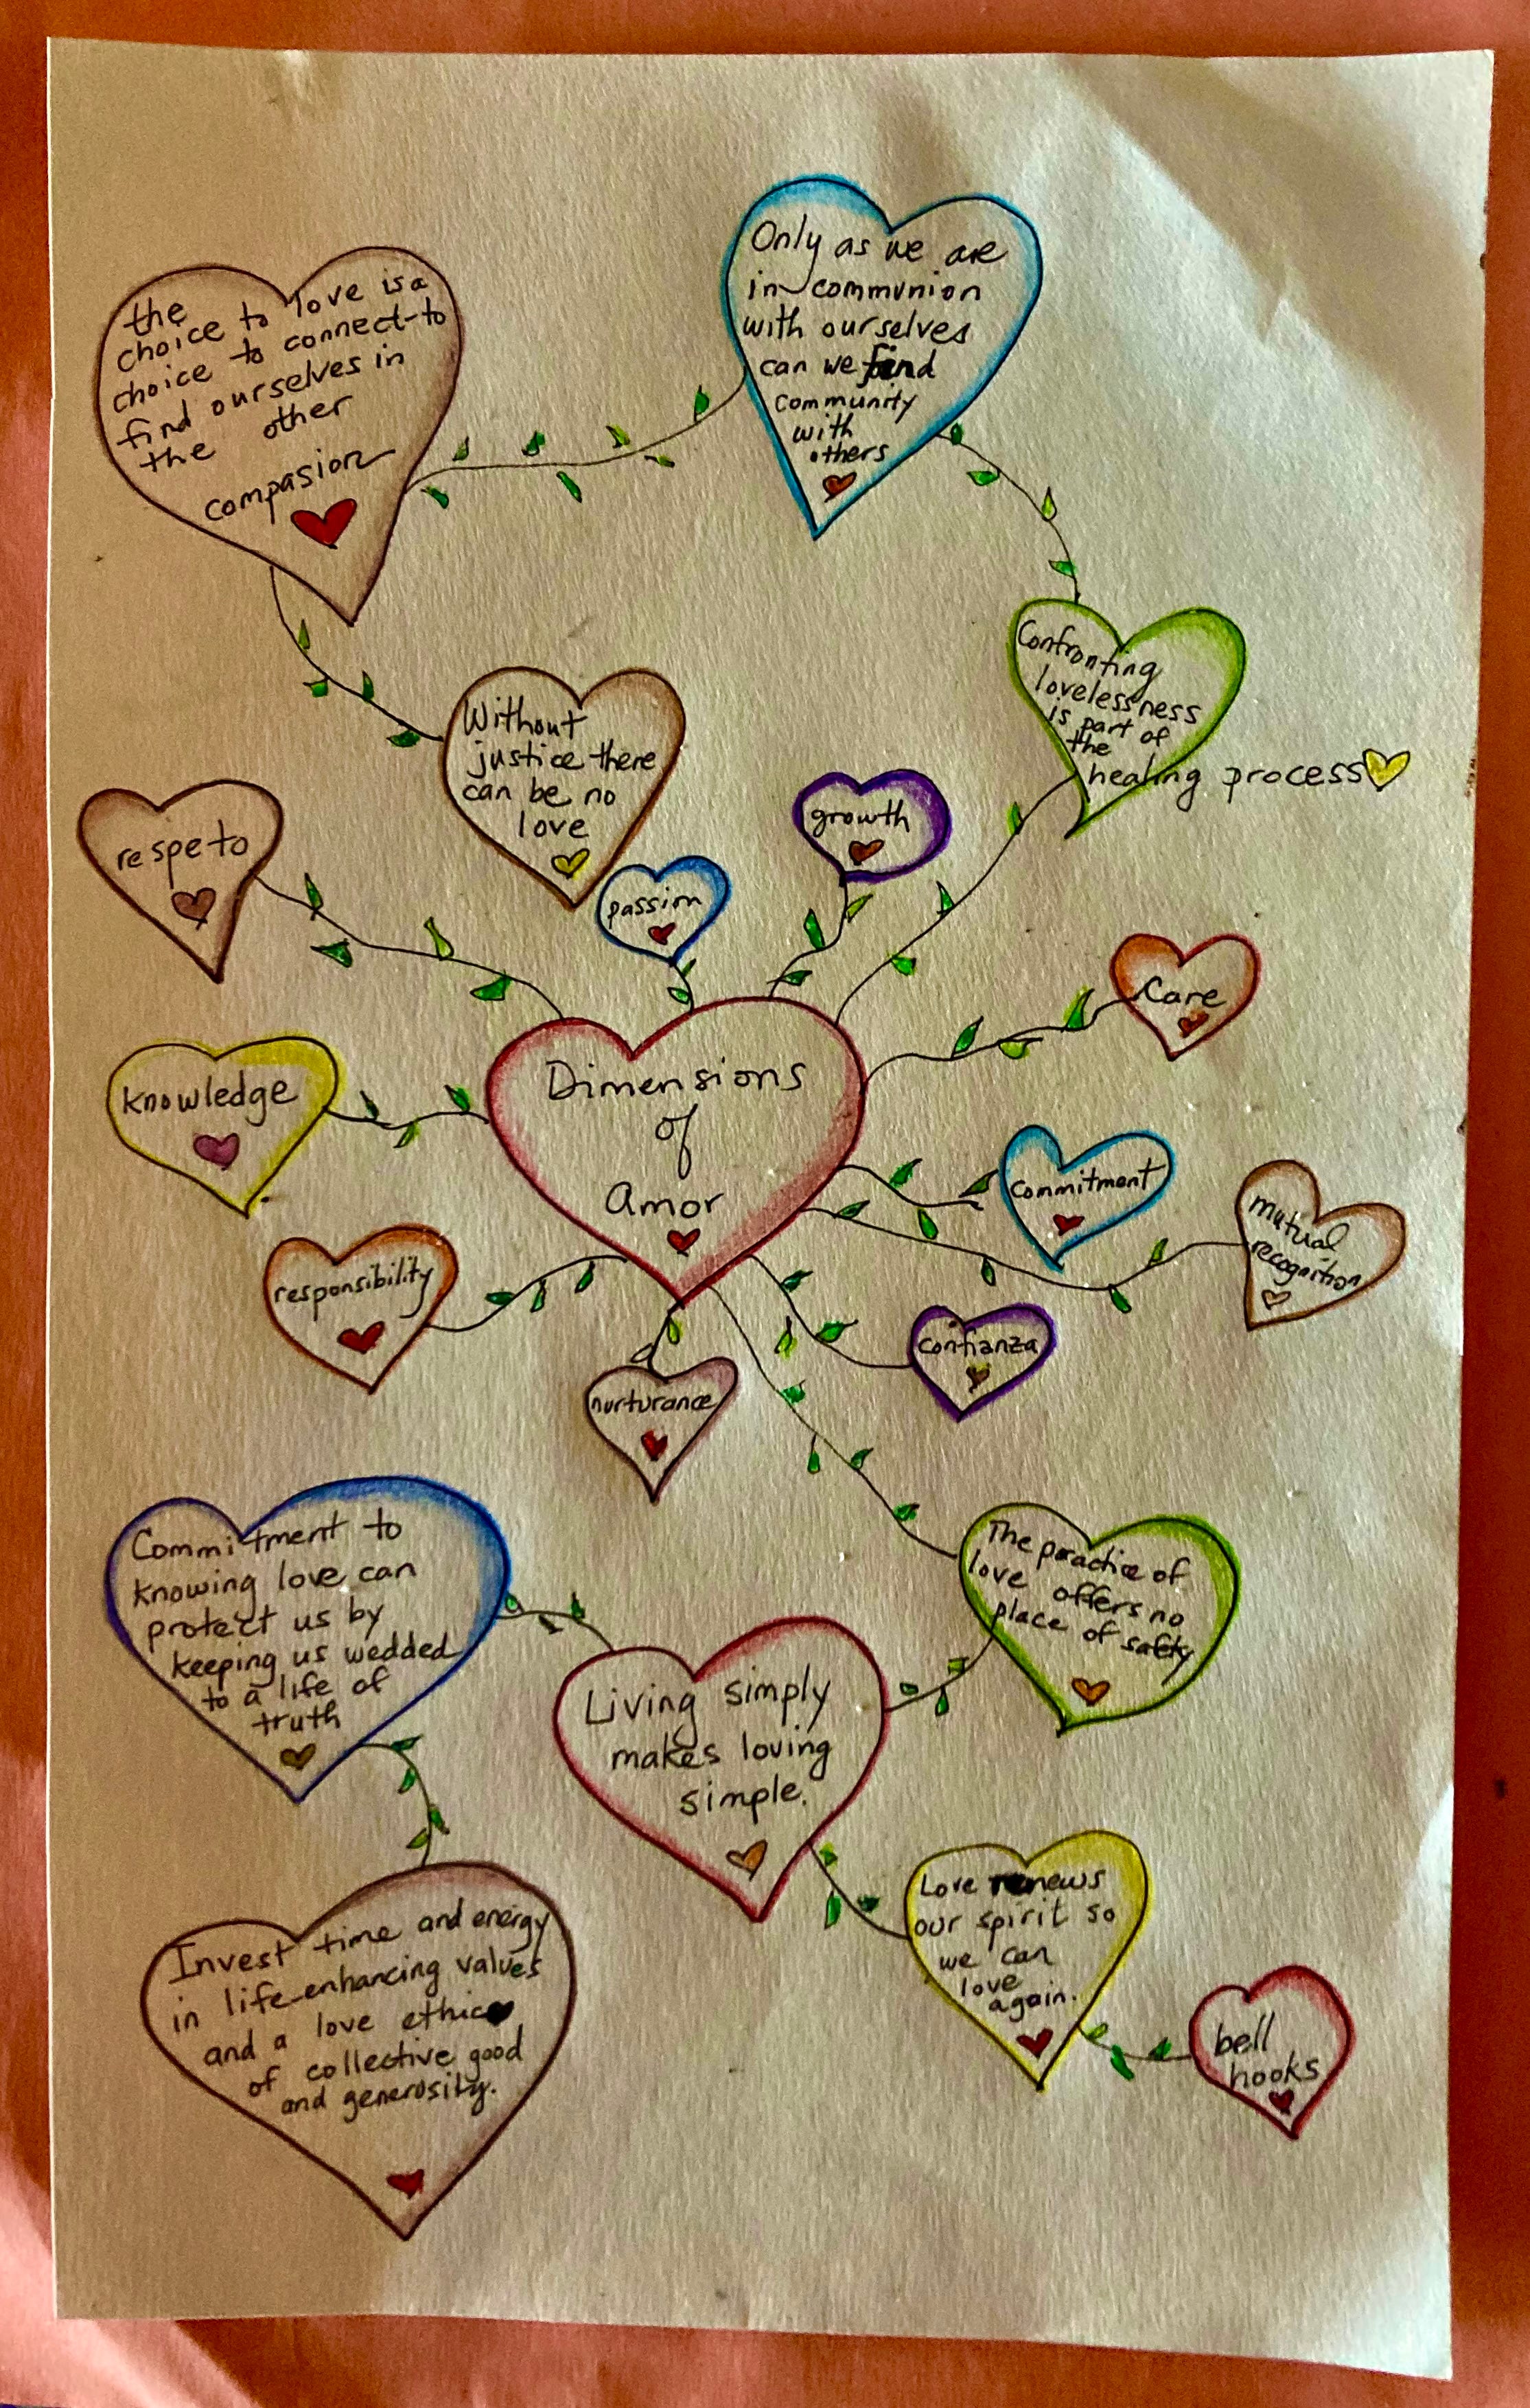 the
choice to love is a
choice to connect-to
find ourselves in
the other
compasion
Only as we are
in communion
with ourselves
can we find
community
with
others
Confronting
lovelessness
is part of
the
healing process
Without
justice there
can be no
love
growth
passion
respeto
Care
knowledge
Dimensions
of
Amor
commitment
mutual
recognition
responsibility
confianza
nurturance
Commitment to
knowing love can
protect us by
keeping us wedded
to a life of
truth
The practice of
love offers no
place of safety
Living simply
makes loving
simple.
Love renews
our spirit so
we can
love
again.
Invest time and energy
in life-enhancing values
and a love ethic
of collective good
and generosity.
bell
hooks